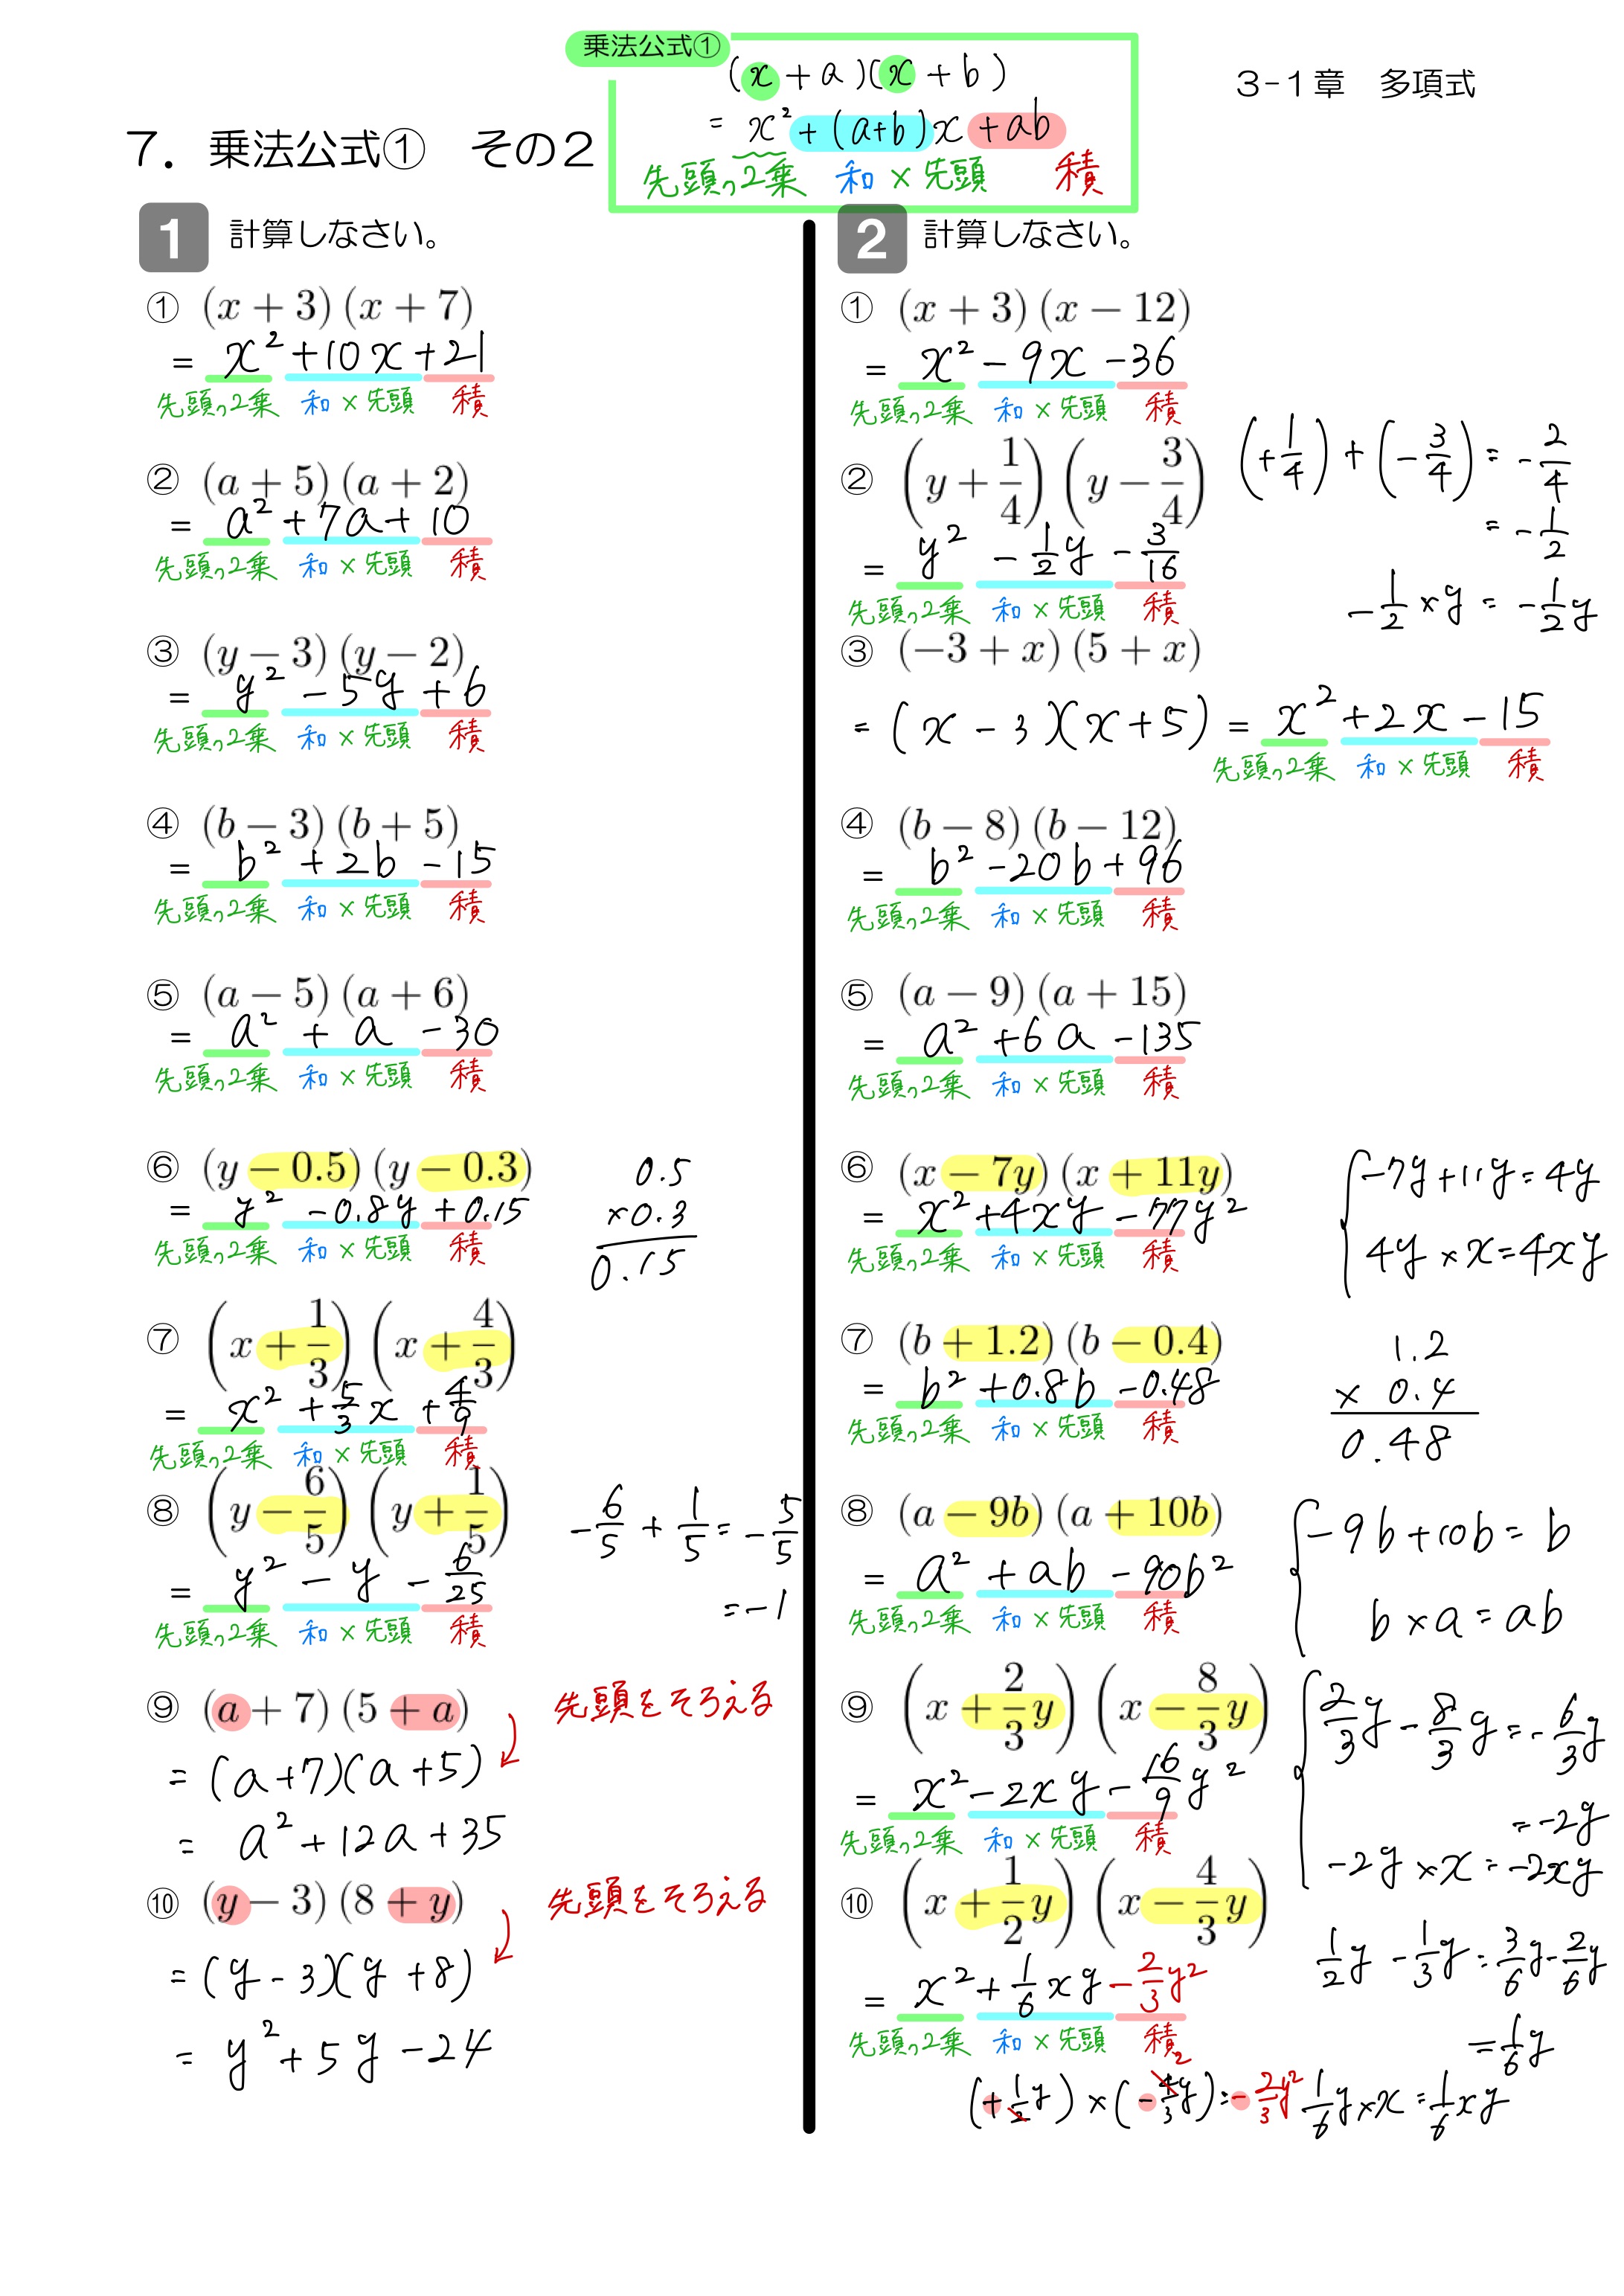 乗法公式①
(x + a)(x + b)
= x² + (a+b)x + ab
先頭の2乗 和×先頭 積
3-1章 多項式
7. 乗法公式① その2
1 計算しなさい。
① (x + 3)(x + 7)
= x² + 10x + 21
先頭の2乗 和×先頭 積
② (a + 5)(a + 2)
= a² + 7a + 10
先頭の2乗 和×先頭 積
③ (y − 3)(y − 2)
= y² − 5y + 6
先頭の2乗 和×先頭 積
④ (b − 3)(b + 5)
= b² + 2b − 15
先頭の2乗 和×先頭 積
⑤ (a − 5)(a + 6)
= a² + a − 30
先頭の2乗 和×先頭 積
⑥ (y − 0.5)(y − 0.3)
= y² − 0.8y + 0.15
先頭の2乗 和×先頭 積
0.5
×0.3
0.15
⑦ (x + 1/3)(x + 4/3)
= x² + 5/3 x + 4/9
先頭の2乗 和×先頭 積
⑧ (y − 6/5)(y + 1/5)
= y² − y − 6/25
先頭の2乗 和×先頭 積
−6/5 + 1/5 = −5/5
= −1
⑨ (a + 7)(5 + a)
先頭をそろえる
= (a+7)(a+5)
= a² + 12a + 35
⑩ (y − 3)(8 + y)
先頭をそろえる
= (y − 3)(y + 8)
= y² + 5y − 24
2 計算しなさい。
① (x + 3)(x − 12)
= x² − 9x − 36
先頭の2乗 和×先頭 積
② (y + 1/4)(y − 3/4)
= y² − 1/2 y − 3/16
先頭の2乗 和×先頭 積
(+1/4) + (−3/4) = −2/4
= −1/2
−1/2 × y = −1/2 y
③ (−3 + x)(5 + x)
= (x − 3)(x + 5) = x² + 2x − 15
先頭の2乗 和×先頭 積
④ (b − 8)(b − 12)
= b² − 20b + 96
先頭の2乗 和×先頭 積
⑤ (a − 9)(a + 15)
= a² + 6a − 135
先頭の2乗 和×先頭 積
⑥ (x − 7y)(x + 11y)
= x² + 4xy − 77y²
先頭の2乗 和×先頭 積
−7y + 11y = 4y
4y × x = 4xy
⑦ (b + 1.2)(b − 0.4)
= b² + 0.8b − 0.48
先頭の2乗 和×先頭 積
1.2
× 0.4
0.48
⑧ (a − 9b)(a + 10b)
= a² + ab − 90b²
先頭の2乗 和×先頭 積
−9b + 10b = b
b × a = ab
⑨ (x + 2/3 y)(x − 8/3 y)
= x² − 2xy − 16/9 y²
先頭の2乗 和×先頭 積
2/3 y − 8/3 y = −6/3 y
= −2y
−2y × x = −2xy
⑩ (x + 1/2 y)(x − 4/3 y)
= x² + 1/6 xy − 2/3 y²
先頭の2乗 和×先頭 積
1/2 y − 1/3 y = 3/6 y − 2/6 y
= 1/6 y
2
(+1/2 y) × (−4/3 y) = −2/3 y²
1/6 y × x = 1/6 xy